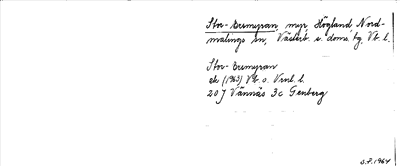 Stor-Bremyran, myr, Högland, Nord-
malings sn, Västerb. s. doms. bg, Vb. l.
Stor-Bremyran
ek (1963) Vb. o. Vrnl. l.
20 J Vännäs 3c Genberg
S.F. 1964